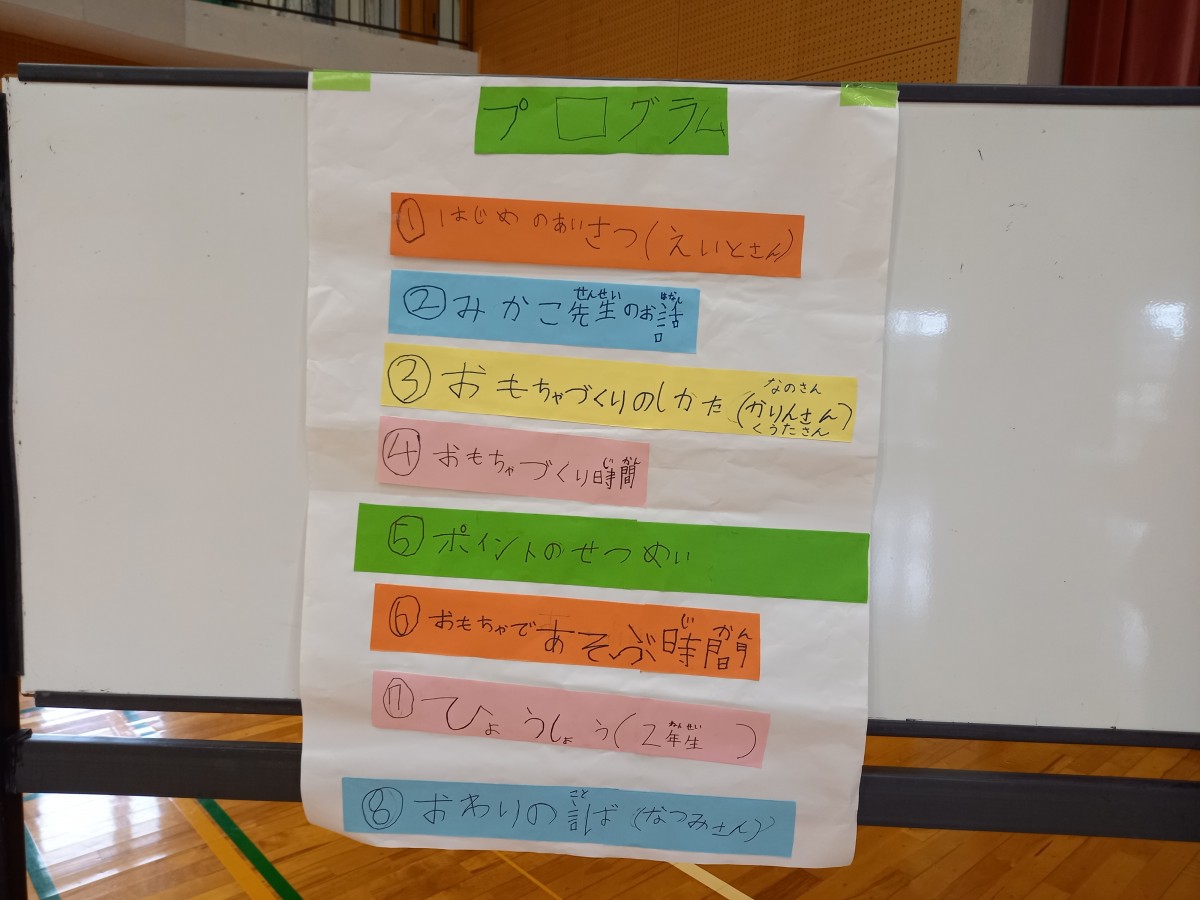 プログラム
①はじめのあいさつ(えいとさん)
せんせい はなし
②みかこ先生のお話
なのさん
③おもちゃづくりのしかた(かりんさん)
くうたさん
じかん
④おもちゃづくり時間
⑤ポイントのせつめい
じかん
⑥おもちゃであそぶ時間
ねんせい
⑦ひょうしょう(2年生)
こと
⑧おわりの言ば(なつみさん)